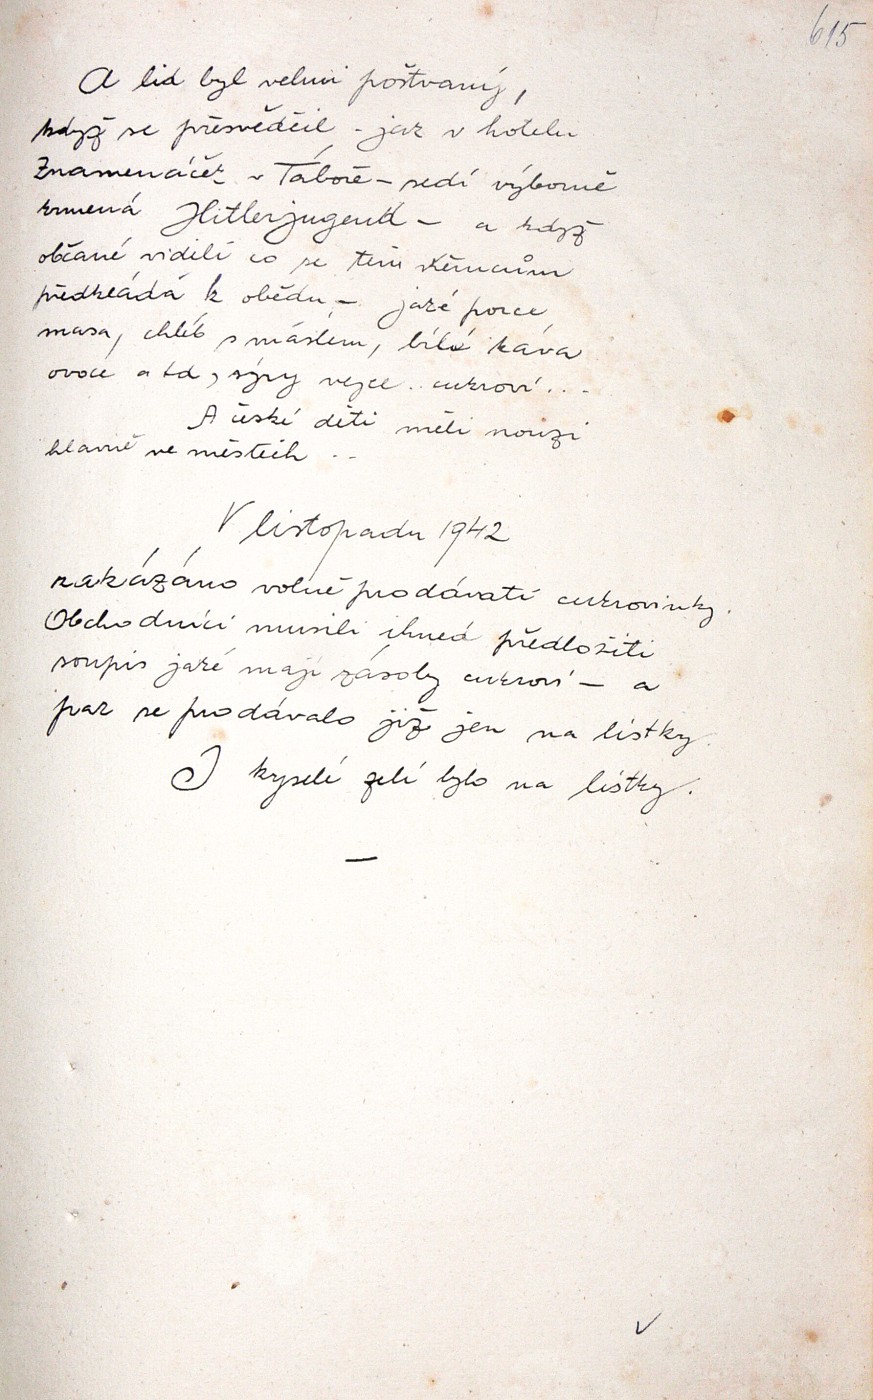 615
A lid byl velmi poštvaný,
když se přesvědčil - jak v hotelu
Znamenáček v Táboře - sedí výborně
krmená Hitlerjugend - a když
občané viděli co se těm Němcům
předkládá k obědu, - jaké porce
masa, chléb s máslem, bílá káva
ovoce a td, sýry vejce .. cukroví ...
A české děti měli nouzi
hlavně ve městech ..
V listopadu 1942
zakázáno volně prodávati cukrovinky.
Obchodníci musili ihned předložiti
soupis jaké mají zásoby cukroví - a
pak se prodávalo již jen na lístky.
I kyselé zelí bylo na lístky.